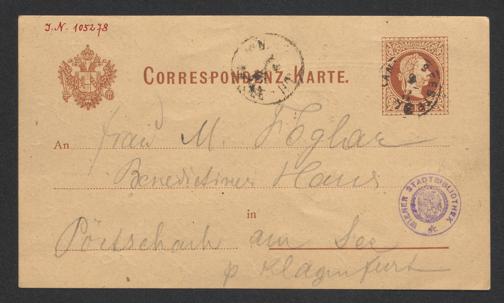 I. N. 105278
CORRESPONDENZ-KARTE.
An
Frau M. Foglar
Benedictiner Haus
in
Pörtschach am See
p Klagenfurt
WIENER STADTBIBLIOTHEK